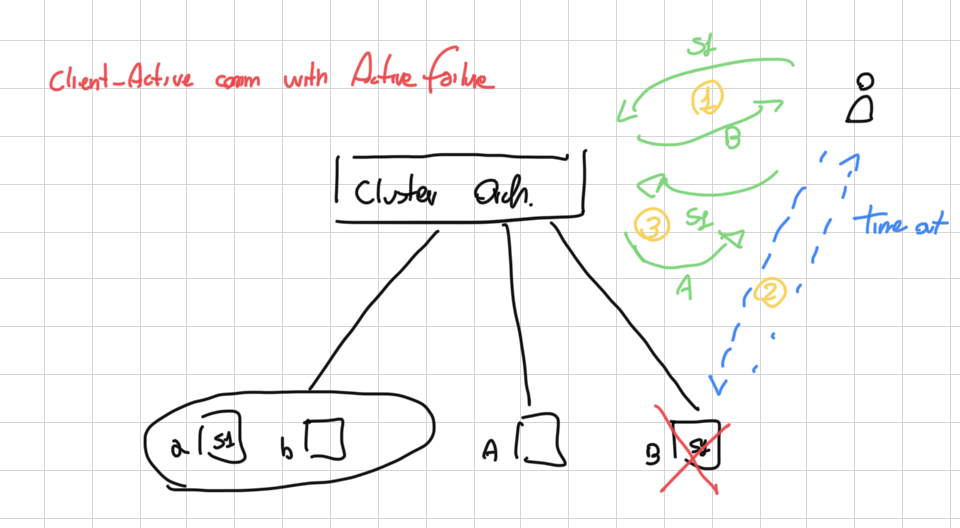 Client-Active comm with Active failure
S1
1
B
Cluster Orch.
3
S1
A
Time out
2
a S1 b
A
B S1